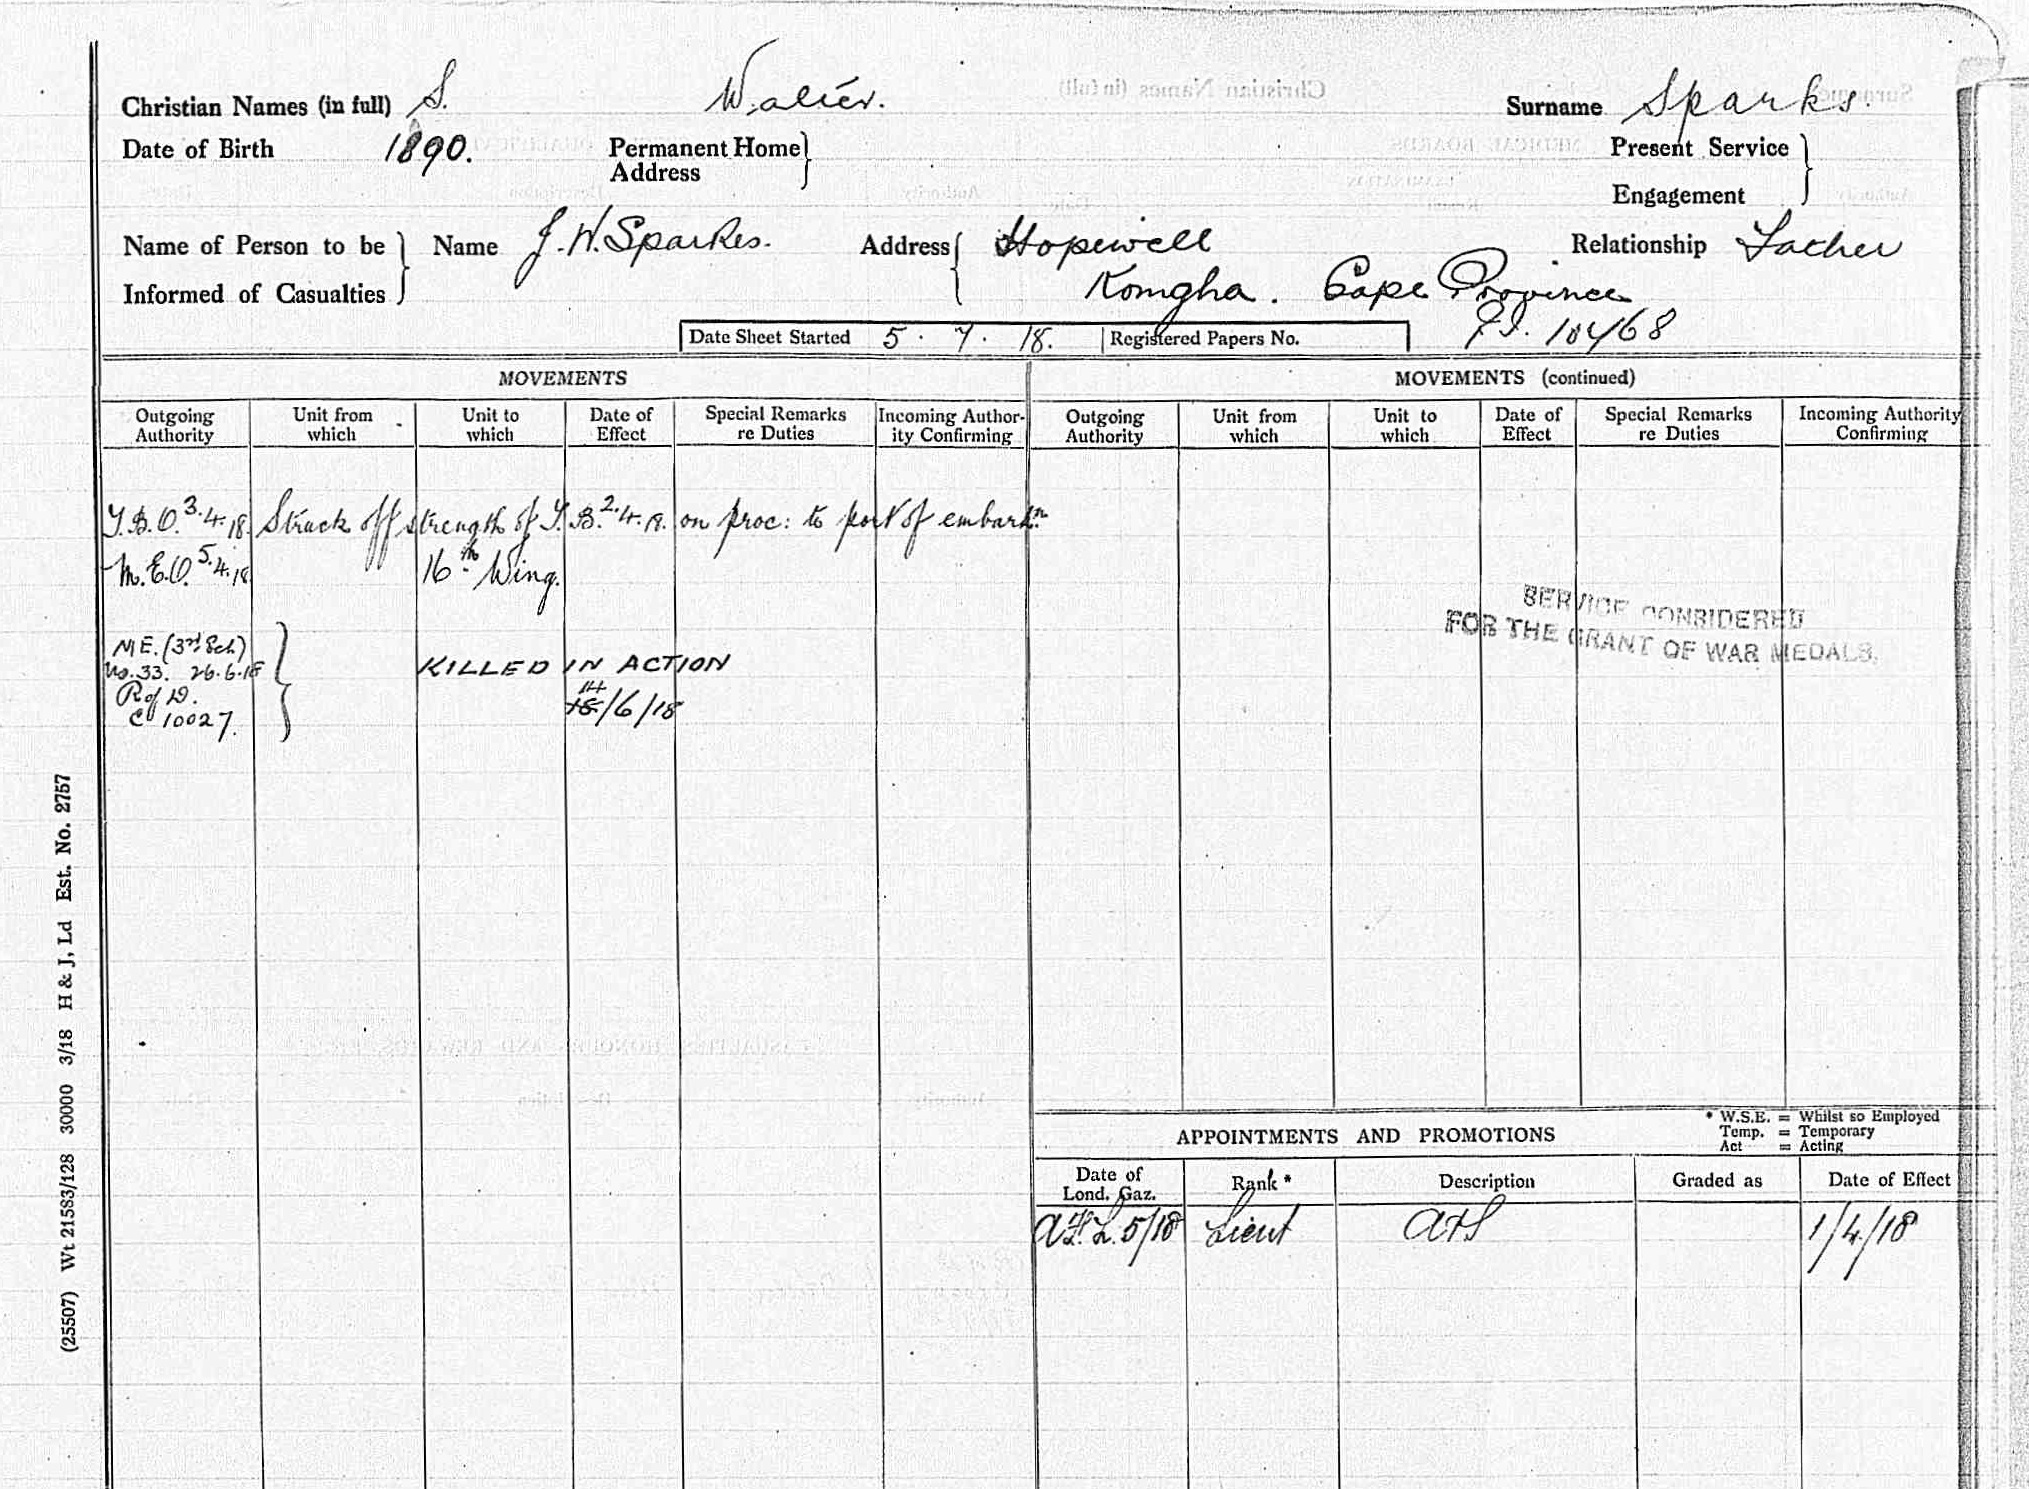 Christian Names (in full) S. Walter. Surname Sparks.
Date of Birth 1890. Permanent Home Address Present Service Engagement
Name of Person to be Informed of Casualties Name J.W. Sparkes. Address Hopewell Relationship Father
Komgha. Cape Province
Date Sheet Started 5.7.18. Registered Papers No. 10468
MOVEMENTS
Outgoing Authority Unit from which Unit to which Date of Effect Special Remarks re Duties Incoming Author-ity Confirming
3.4.18 Struck off strength of 2.4.18. on proc: to port of embarkn
M.E.O. 5.4.18 16th Wing.
M.E. (3rd Sch)
No. 33. 26.6.18 KILLED IN ACTION
R of D. 14
C 10027. 18/6/18
MOVEMENTS (continued)
Outgoing Authority Unit from which Unit to which Date of Effect Special Remarks re Duties Incoming Authority Confirming
SERVICE CONSIDERED
FOR THE GRANT OF WAR MEDALS.
APPOINTMENTS AND PROMOTIONS
* W.S.E. = Whilst so Employed
Temp. = Temporary
Act = Acting
Date of Lond. Gaz. Rank * Description Graded as Date of Effect
A.F.L. 5/18 Lieut 1/4/18
(25507) Wt 21583/128 30000 3/18 H & J, Ld Est. No. 2757